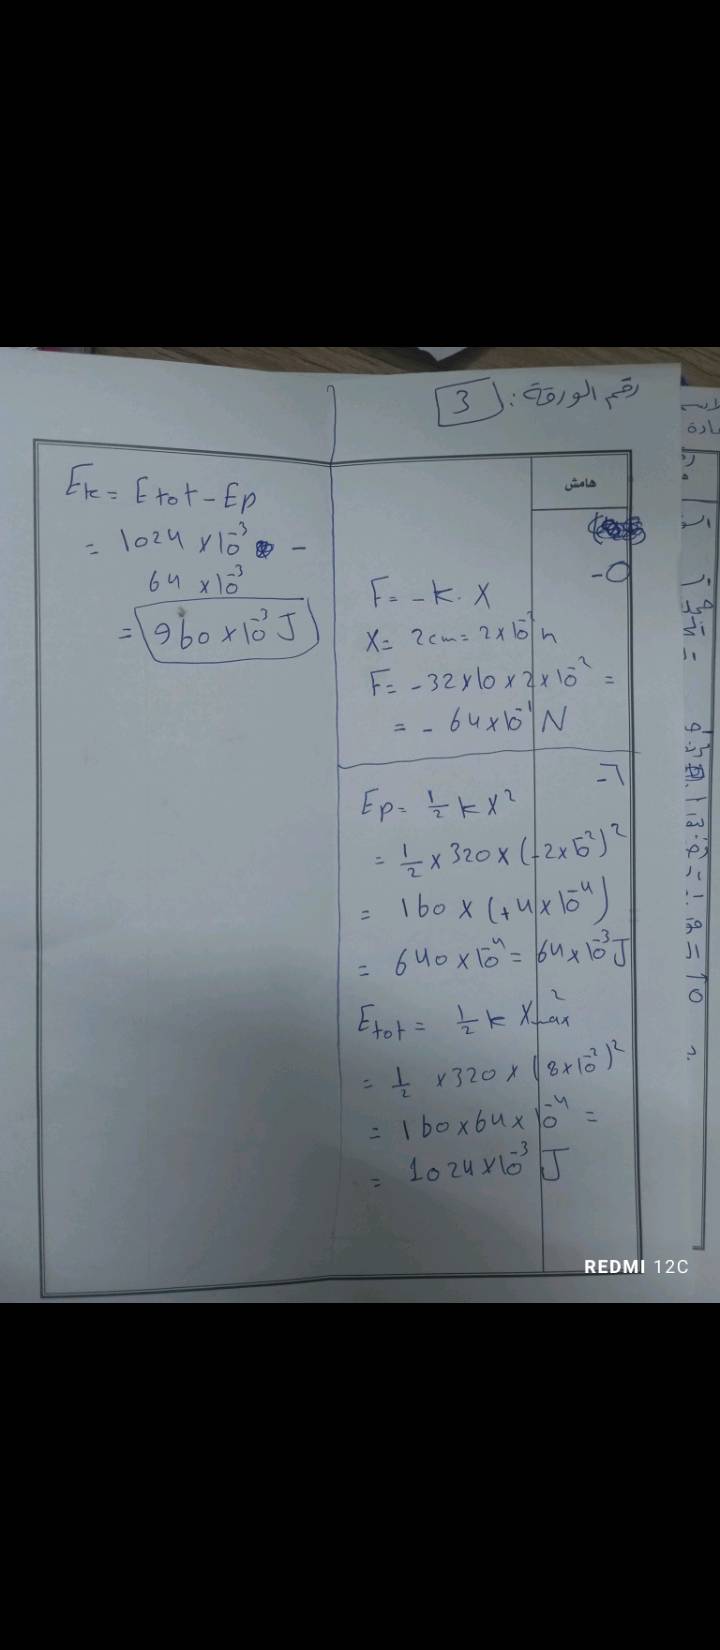 رقم الورقة: 3
هامش
-٥
F = -k. X
X = 2cm = 2×10⁻² m
F = -32×10×2×10⁻² =
= -64×10⁻¹ N
-٦
Ep = 1/2 k X²
= 1/2 × 320 × (-2×10⁻²)²
= 160 × (+4×10⁻⁴)
= 640×10⁻⁴ = 64×10⁻³ J
Etot = 1/2 k Xmax²
= 1/2 ×320 × (8×10⁻²)²
= 160×64×10⁻⁴ =
= 1024×10⁻³ J
Ek = Etot - Ep
= 1024 ×10⁻³ -
64 ×10⁻³
= 960×10⁻³ J
REDMI 12C